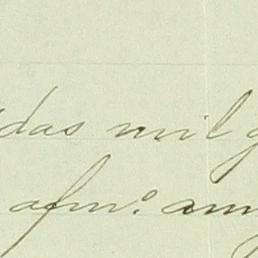 das mil g
afmº am